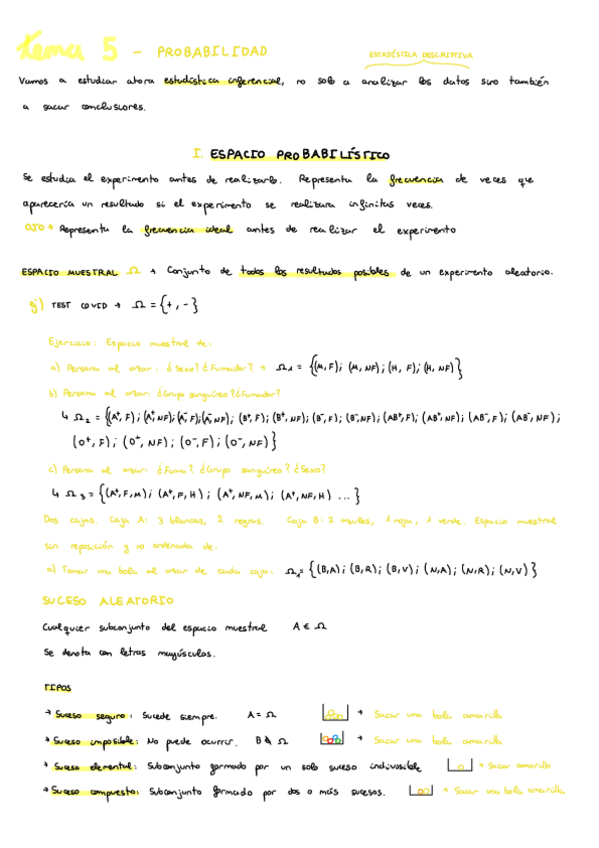 tema 5 - PROBABILIDAD
ESTADÍSTICA DESCRIPTIVA
Vamos a estudiar ahora estadística inferencial, no solo a analizar los datos sino también
a sacar conclusiones.
I. ESPACIO PROBABILÍSTICO
Se estudia el experimento antes de realizarlo. Representa la frecuencia de veces que
aparecería un resultado si el experimento se realizara infinitas veces.
OJO → Representa la frecuencia ideal antes de realizar el experimento
ESPACIO MUESTRAL Ω → Conjunto de todos los resultados posibles de un experimento aleatorio.
ej) TEST COVID → Ω = {+, -}
Ejercicio: Espacio muestral de:
a) Persona al azar: ¿Sexo? ¿Fumador? → Ω₁ = {(M, F); (M, NF); (H, F); (H, NF)}
b) Persona al azar: ¿Grupo sanguíneo? ¿Fumador?
↳ Ω₂ = {(A⁺, F); (A⁺, NF); (A⁻, F); (A⁻, NF); (B⁺, F); (B⁺, NF); (B⁻, F); (B⁻, NF); (AB⁺, F); (AB⁺, NF); (AB⁻, F); (AB⁻, NF);
(O⁺, F); (O⁺, NF); (O⁻, F); (O⁻, NF)}
c) Persona al azar: ¿Fuma? ¿Grupo sanguíneo? ¿Sexo?
↳ Ω₃ = {(A⁺, F, M); (A⁺, F, H); (A⁺, NF, M); (A⁺, NF, H) ...}
Dos cajas. Caja A: 3 blancas, 2 negras. Caja B: 2 azules, 1 roja, 1 verde. Espacio muestral
sin reposición y no ordenada de:
a) Tomar una bola al azar de cada caja: Ω₁ = {(B, A); (B, R); (B, V); (N, A); (N, R); (N, V)}
SUCESO ALEATORIO
Cualquier subconjunto del espacio muestral A ∈ Ω
Se denota con letras mayúsculas.
TIPOS
→ Suceso seguro: Sucede siempre. A = Ω → Sacar una bola amarilla
→ Suceso imposible: No puede ocurrir. B ∉ Ω → Sacar una bola amarilla
→ Suceso elemental: Subconjunto formado por un solo suceso indivisible → Sacar amarilla
→ Suceso compuesto: Subconjunto formado por dos o más sucesos. → Sacar una bola amarilla